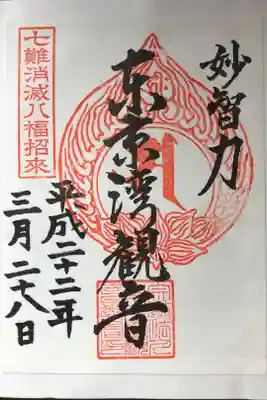 妙智力
东京湾観音
七難消滅八福招来
平成二十二年
三月二十八日